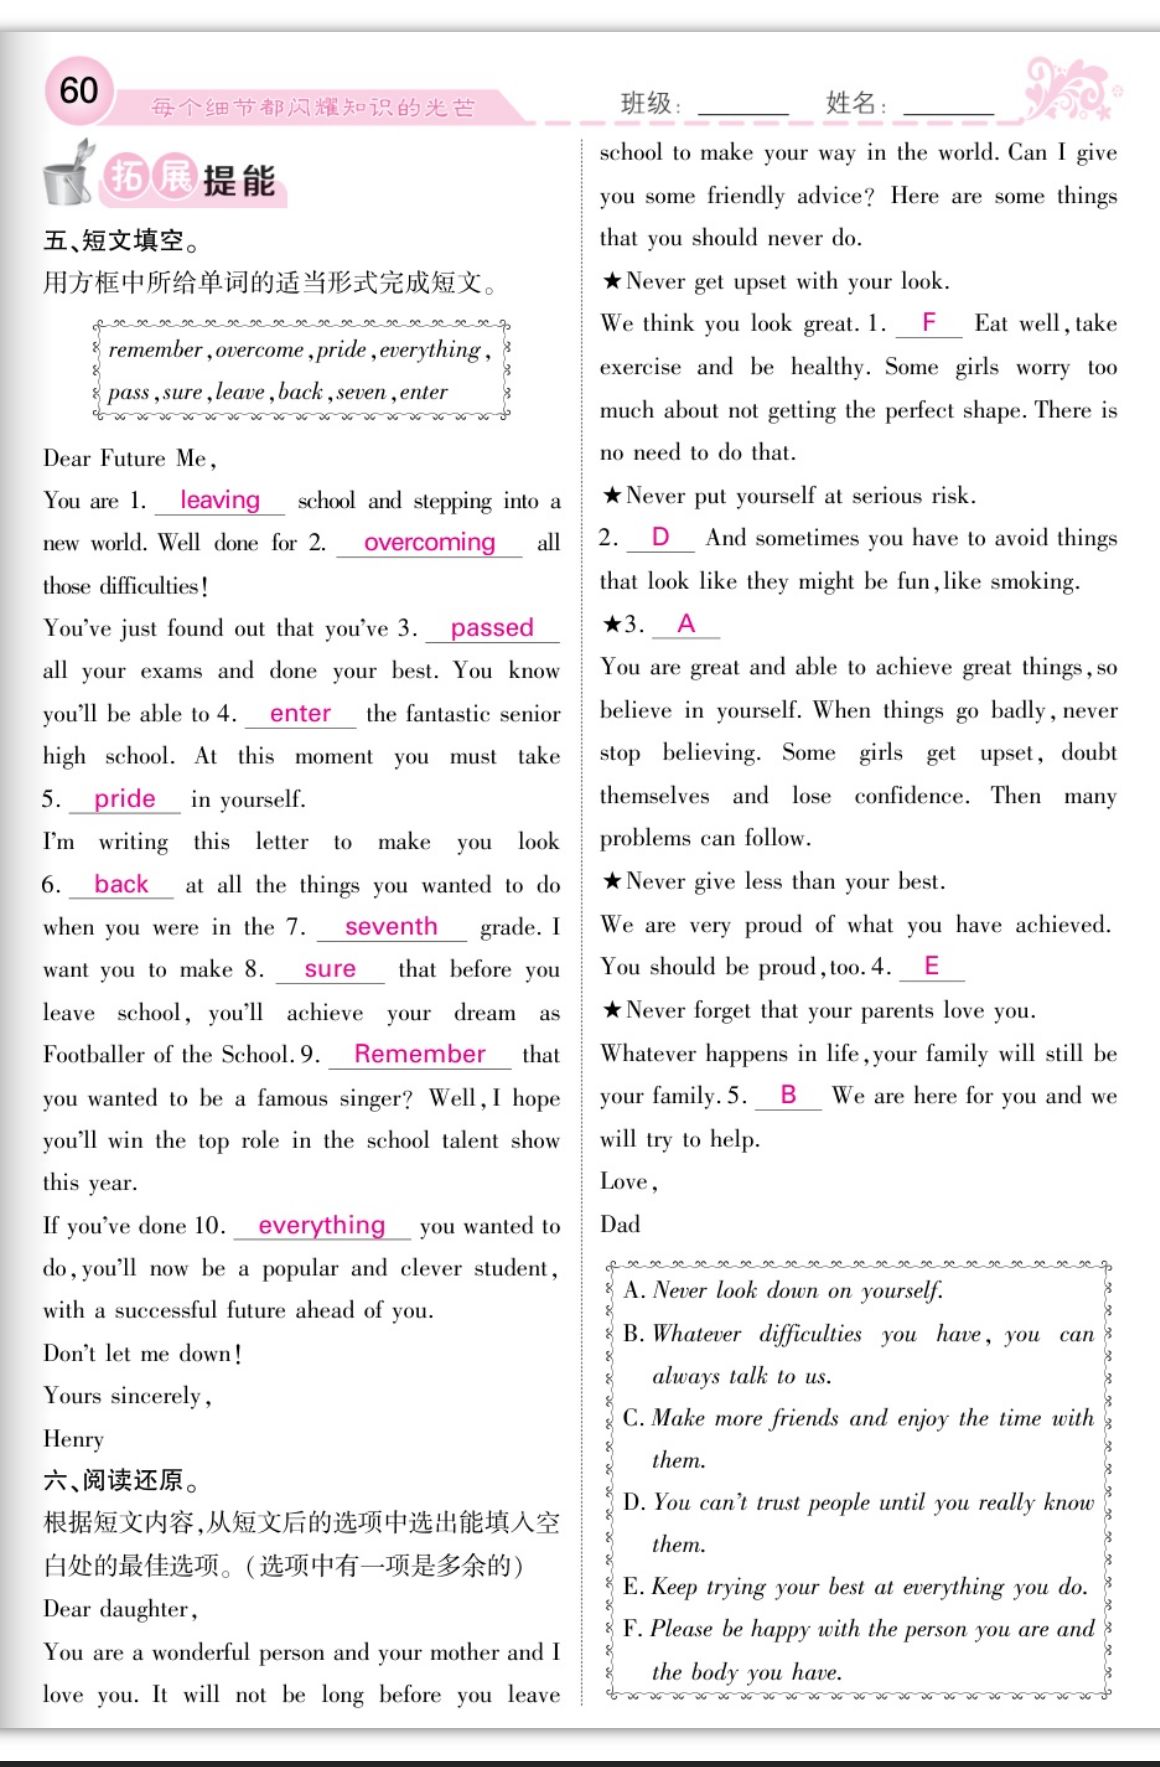 60
每个细节都闪耀知识的光芒
班级：
姓名：
拓展提能
五、短文填空。
用方框中所给单词的适当形式完成短文。
remember,overcome,pride,everything,
pass,sure,leave,back,seven,enter
Dear Future Me,
You are 1. leaving school and stepping into a
new world. Well done for 2. overcoming all
those difficulties!
You've just found out that you've 3. passed
all your exams and done your best. You know
you'll be able to 4. enter the fantastic senior
high school. At this moment you must take
5. pride in yourself.
I'm writing this letter to make you look
6. back at all the things you wanted to do
when you were in the 7. seventh grade. I
want you to make 8. sure that before you
leave school, you'll achieve your dream as
Footballer of the School. 9. Remember that
you wanted to be a famous singer? Well, I hope
you'll win the top role in the school talent show
this year.
If you've done 10. everything you wanted to
do, you'll now be a popular and clever student,
with a successful future ahead of you.
Don't let me down!
Yours sincerely,
Henry
六、阅读还原。
根据短文内容,从短文后的选项中选出能填入空
白处的最佳选项。(选项中有一项是多余的)
Dear daughter,
You are a wonderful person and your mother and I
love you. It will not be long before you leave
school to make your way in the world. Can I give
you some friendly advice? Here are some things
that you should never do.
★Never get upset with your look.
We think you look great. 1. F Eat well, take
exercise and be healthy. Some girls worry too
much about not getting the perfect shape. There is
no need to do that.
★Never put yourself at serious risk.
2. D And sometimes you have to avoid things
that look like they might be fun, like smoking.
★3. A
You are great and able to achieve great things, so
believe in yourself. When things go badly, never
stop believing. Some girls get upset, doubt
themselves and lose confidence. Then many
problems can follow.
★Never give less than your best.
We are very proud of what you have achieved.
You should be proud, too. 4. E
★Never forget that your parents love you.
Whatever happens in life, your family will still be
your family. 5. B We are here for you and we
will try to help.
Love,
Dad
A. Never look down on yourself.
B. Whatever difficulties you have, you can
always talk to us.
C. Make more friends and enjoy the time with
them.
D. You can't trust people until you really know
them.
E. Keep trying your best at everything you do.
F. Please be happy with the person you are and
the body you have.